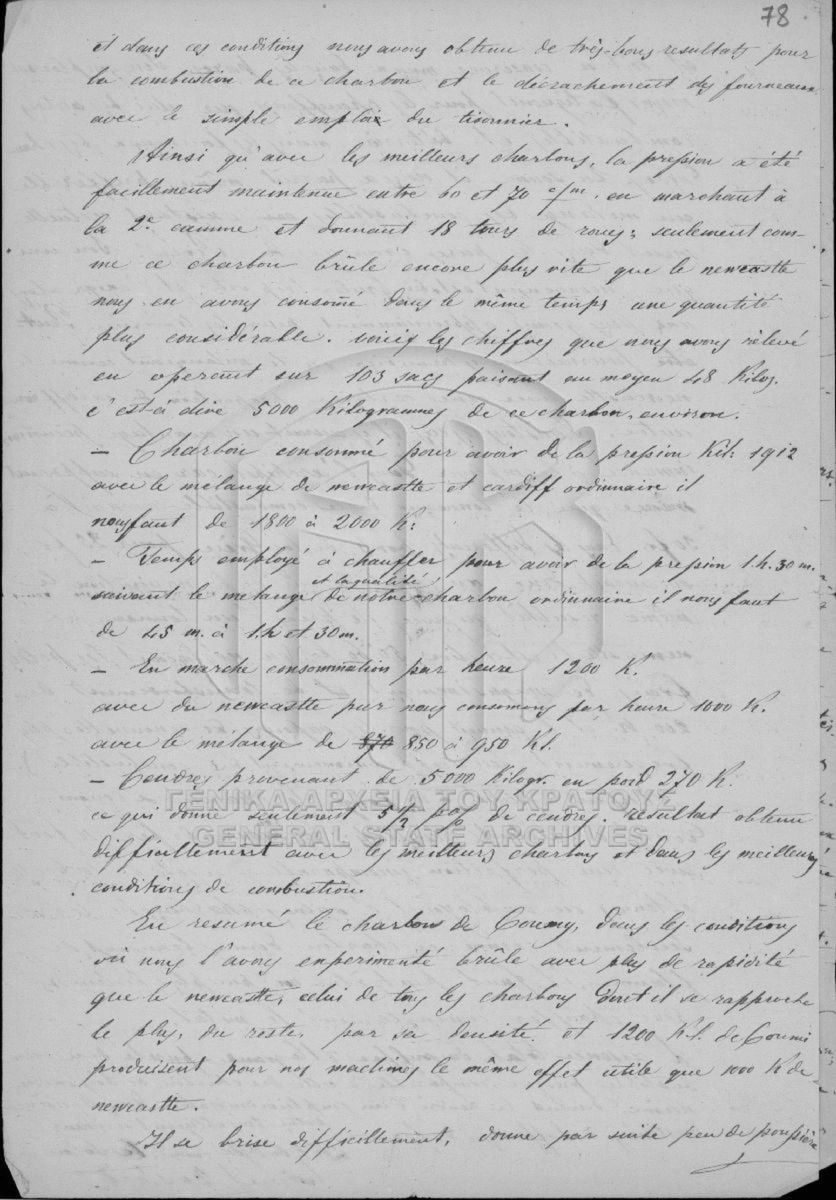 78
et dans ces conditions nous avons obtenu de très-bons resultats pour
la combustion de ce charbon et le décrachement des fourneaux
avec le simple emploie du tisonnier.
Ainsi qu'avec les meilleurs charbons, la pression a été
facillement maintenue entre 60 et 70 c/m. en marchant à
la 2e camme et donnant 18 tours de roues; seulement com-
me ce charbon brûle encore plus vite que le newcastle
nous en avons consomé dans le même temps une quantité
plus considérable. voiciy les chiffres que nous avons relevé
en operant sur 103 sacs paisant au moyen 48 Kilos.
c'est à dire 5000 Kilogrammes de ce charbon, environ.
— Charbon consommé pour avoir de la pression Kil: 1912
avec le mélange de newcastle et cardiff ordinnaire il
nous faut de 1800 à 2000 K:
— Temps employé à chauffer pour avoir de la pression 1.h.30 m.
et la qualité
suivant le melange de notre charbon ordinnaire il nous faut
de 45 m. à 1.h et 30 m.
— En marche consommation par heure 1200 K.
avec du newcastle pur nous consomons par heure 1000 K.
avec le mélange de 870 850 à 950 Kl.
— Cendres provenant de 5000 Kilogr. en poid 270 K.
ce qui donne seulement 5 1/2 p% de cendres. resultat obtenu
difficillement avec les meilleurs charbons et dans les meilleures
conditions de combustion.
ΓΕΝΙΚΑ ΑΡΧΕΙΑ ΤΟΥ ΚΡΑΤΟΥΣ
GENERAL STATE ARCHIVES
En resumé le charbon de Coumy, dans les conditions
où nous l'avons experimenté brûle avec plus de rapidité
que le newcastle, celui de tous les charbons dont il se rapproche
le plus, du reste, par sa densité et 1200 Kl. de Coumi
produisent pour nos machines le même effet utile que 1000 K de
newcastle.
Il se brise difficillement, donne par suite peu de poussière